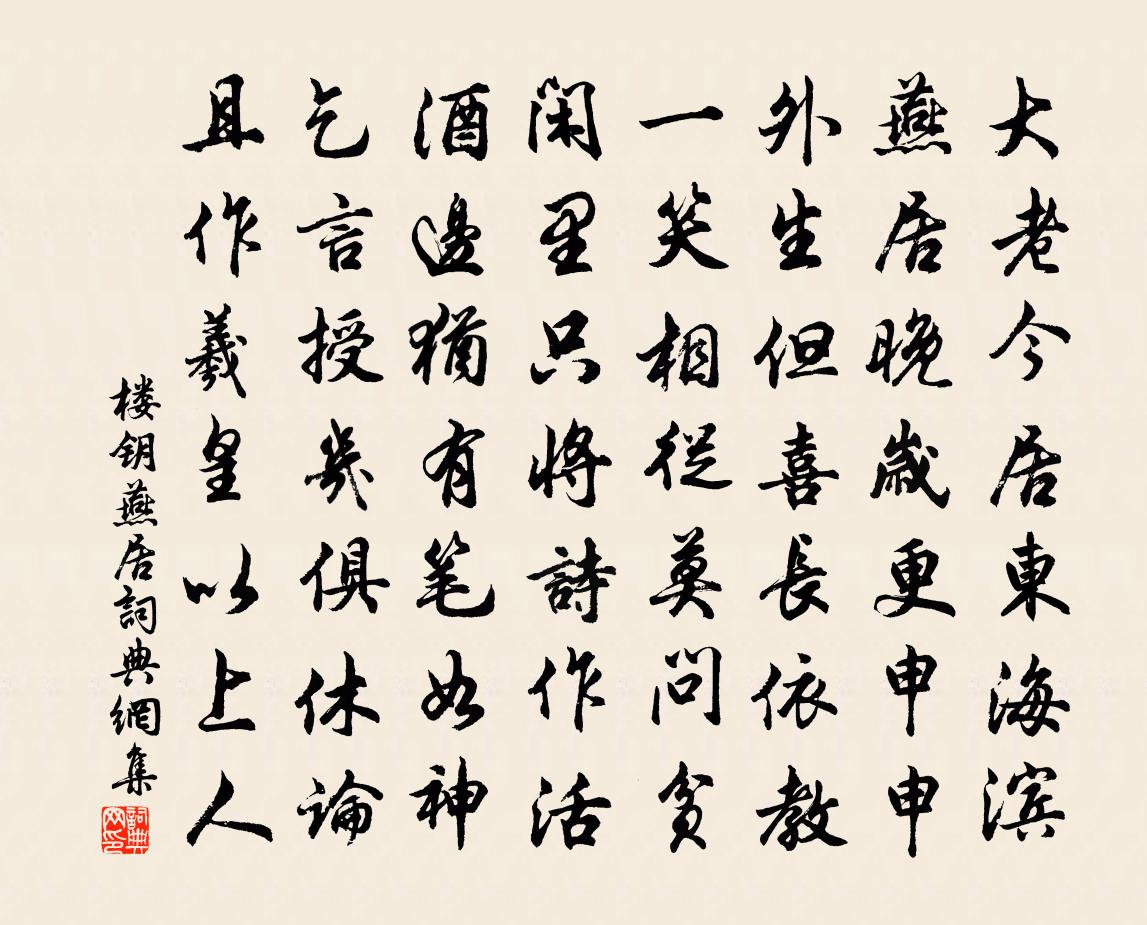 大老今居東海滨
燕居晚歲更申申
外生但喜長依教
一笑相從莫問貧
閑里只將詩作活
酒邊猶有笔如神
乞言授幾俱休論
且作羲皇以上人
楼钥燕居詞典網集
詞典网印